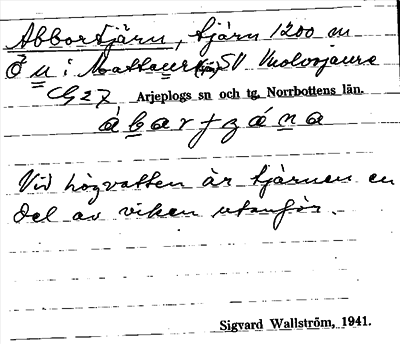 Abbortjärn, tjärn 1200 m
Ö u i Mattaur SV Vuolvojaure
Cg 27 Arjeplogs sn och tg, Norrbottens län.
Vid högvatten är tjärnen en
del av viken utanför.
Sigvard Wallström, 1941.